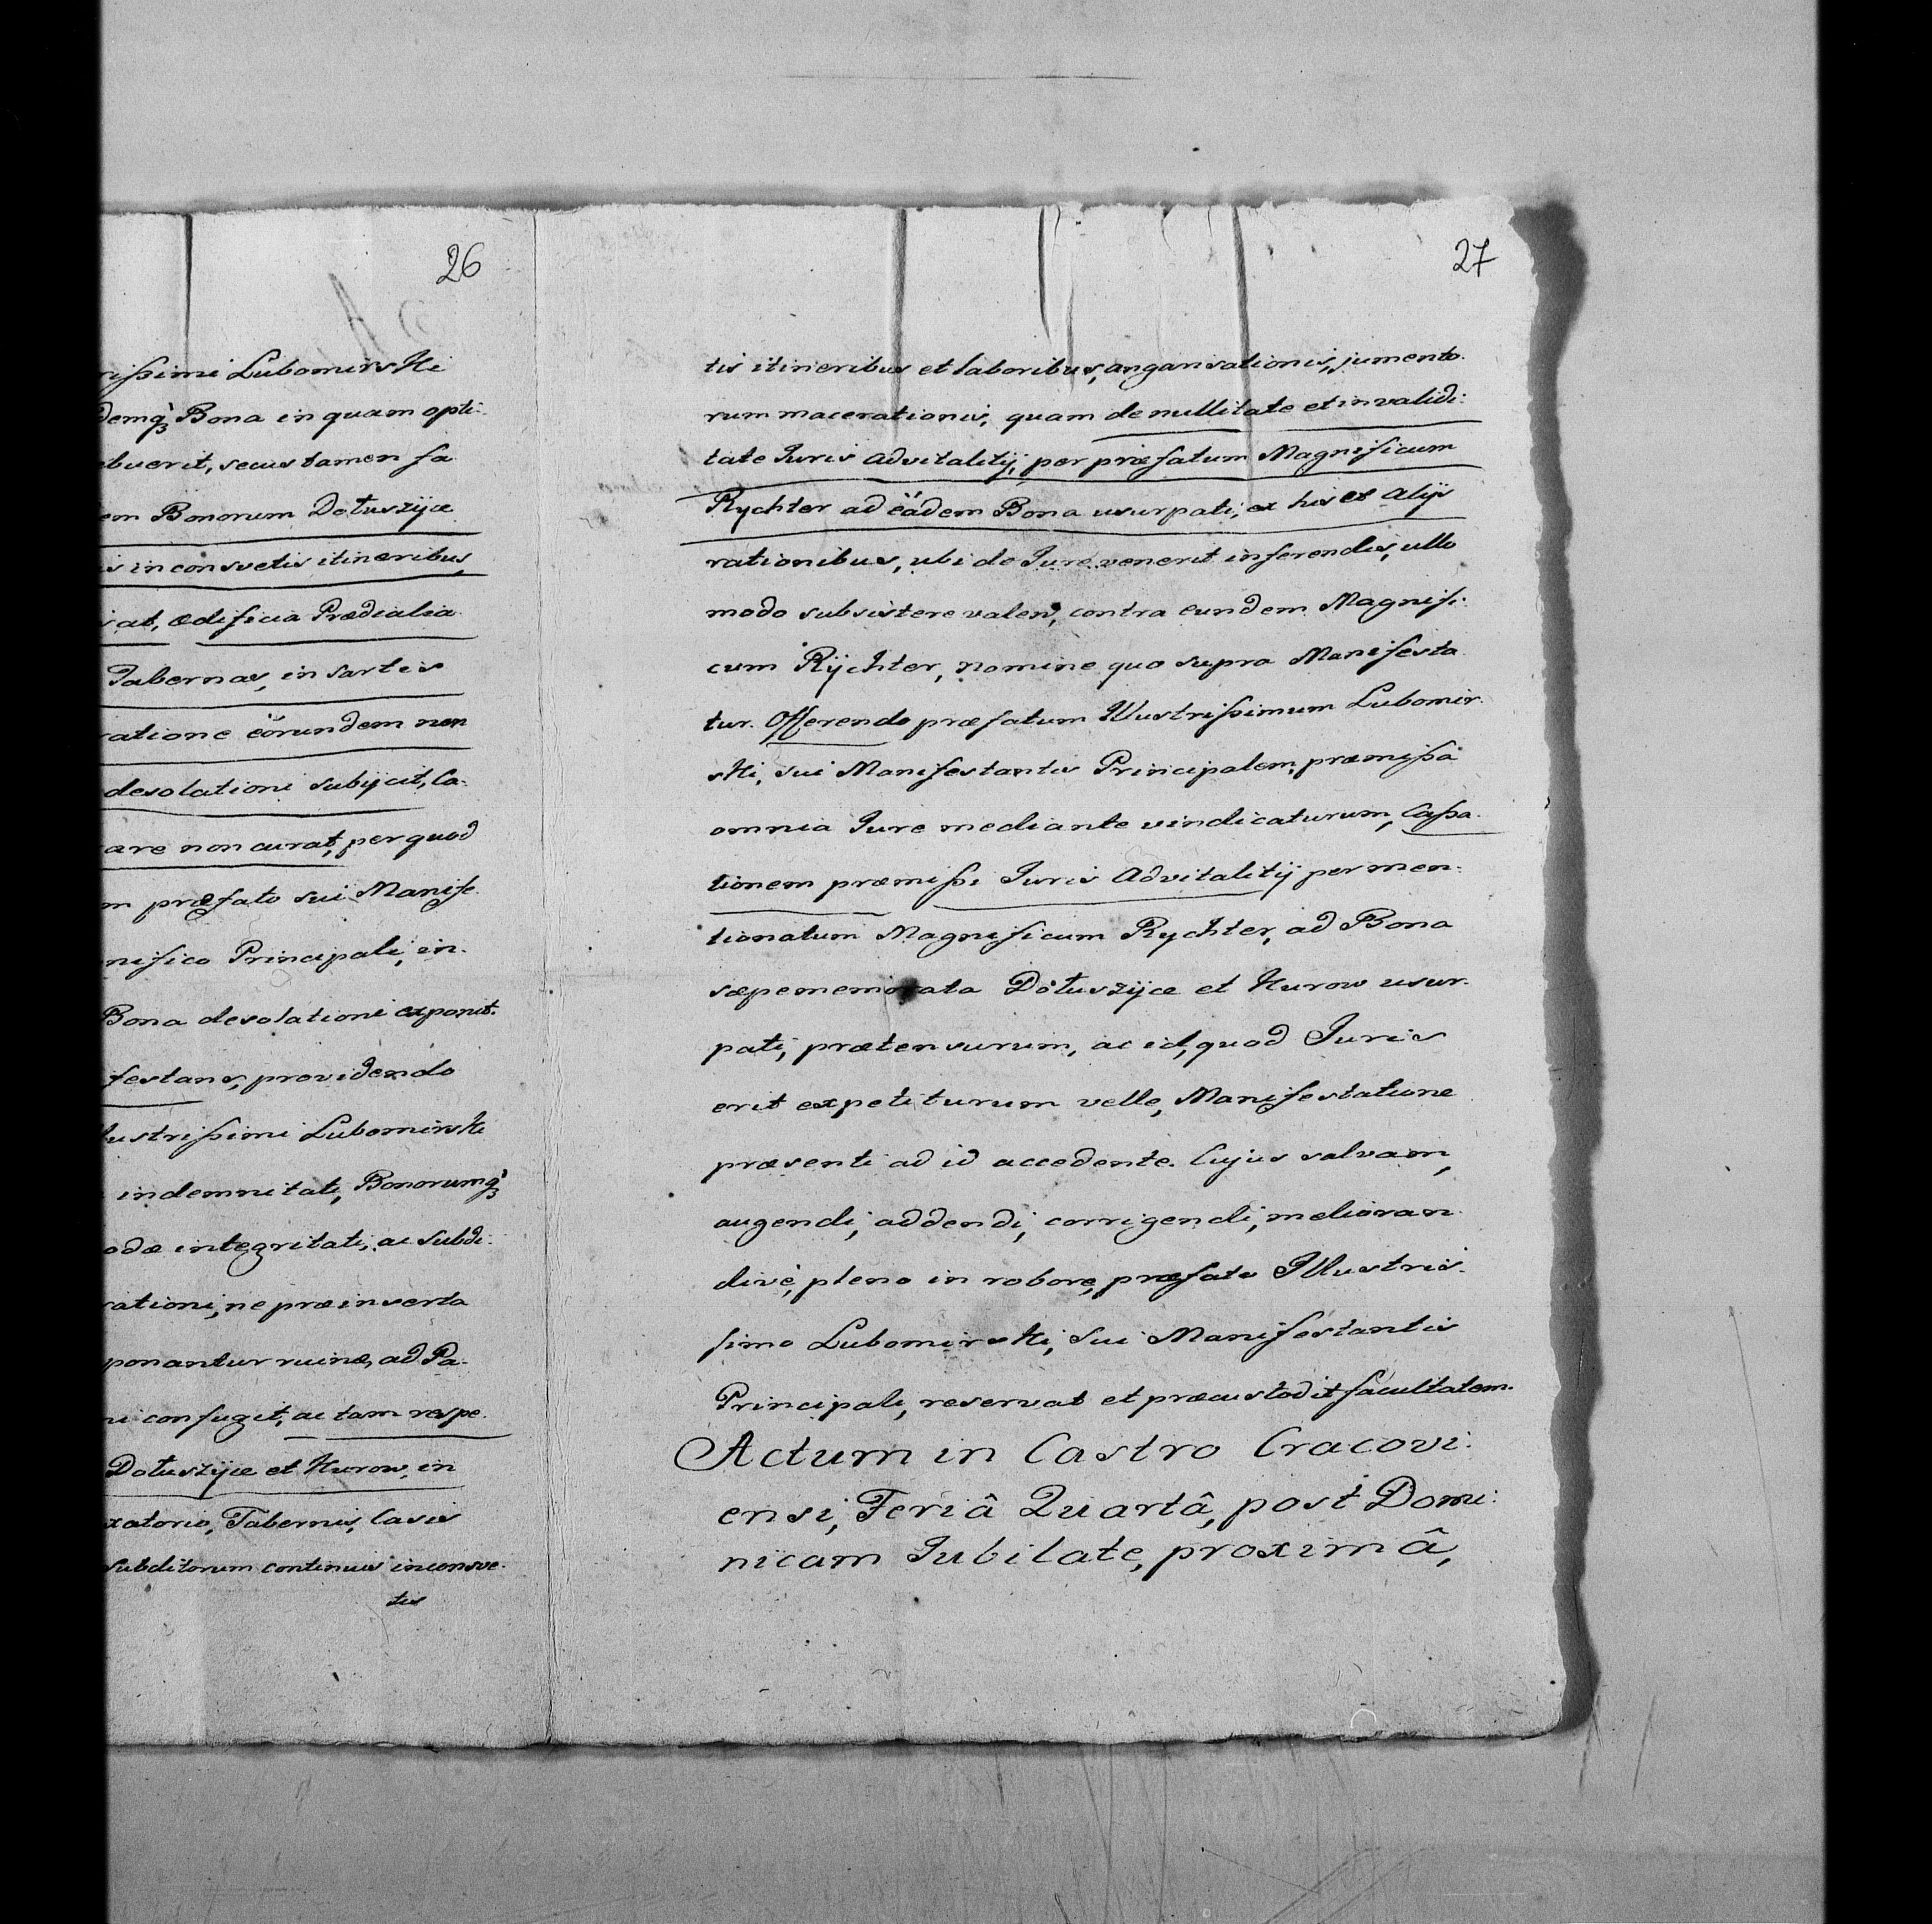 26
rißimi Lubomirski
demq́ Bona in quam opti-
ebuerit, secus tamen fa
em Bonorum Dołuszÿce
is inconsvetis itineribus,
at, ædificia Prædialia
Tabernas, in sartis
ratione eorundem non
desolationi subijcit, Ca-
are non curat, per quod
m præfato sui Manife-
nifico Principali, in-
Bona desolationi exponit.
festans, providendo
lustrißimi Lubomirski
indemnitati, Bonorumq́
odæ integritati, ac Subdi-
rationi, ne præinserta
ponantur ruinæ, ad Pa-
ni confugit, ac tam respe-
Dołuszÿce et Kurow, in
xatorio, Tabernis, Casis
subditorum continuis inconsve-
tis
27
tis itineribus et laboribus, angarisationis, jumento-
rum macerationis, quam de nullitate et invalidi-
tate Juris Advitalitij, per præfatum Magnificum
Rychter ad eadem Bona usurpati, ex his et alijs
rationibus, ubi de Jure venerit inferendis, ullo
modo subsistere valens, contra eundem Magnifi-
cum Rÿchter, nomine quo supra Manifesta-
tur. Offerendo præfatum Illustrißimum Lubomir-
ski, sui Manifestantis Principalem, præmißa
omnia Jure mediante vindicaturum, Caßa-
tionem præmißi Juris Advitalitij per men-
tionatum Magnificum Rychter, ad Bona
sæpememorata Dołuszÿce et Kurow usur-
pati, prætensurum, ac id, quod Juris
erit expetiturum velle, Manifestatione
præsenti ad id accedente. Cujus salvam,
augendi, addendi, corrigendi, melioran-
divè, pleno in robore, præfato Illustris-
simo Lubomirski, Sui Manifestantis
Principali, reservat et præcustodit facultatem.
Actum in Castro Cracovi-
ensi, Feriâ Quartâ, post Domi-
nicam Jubilate, proximâ,